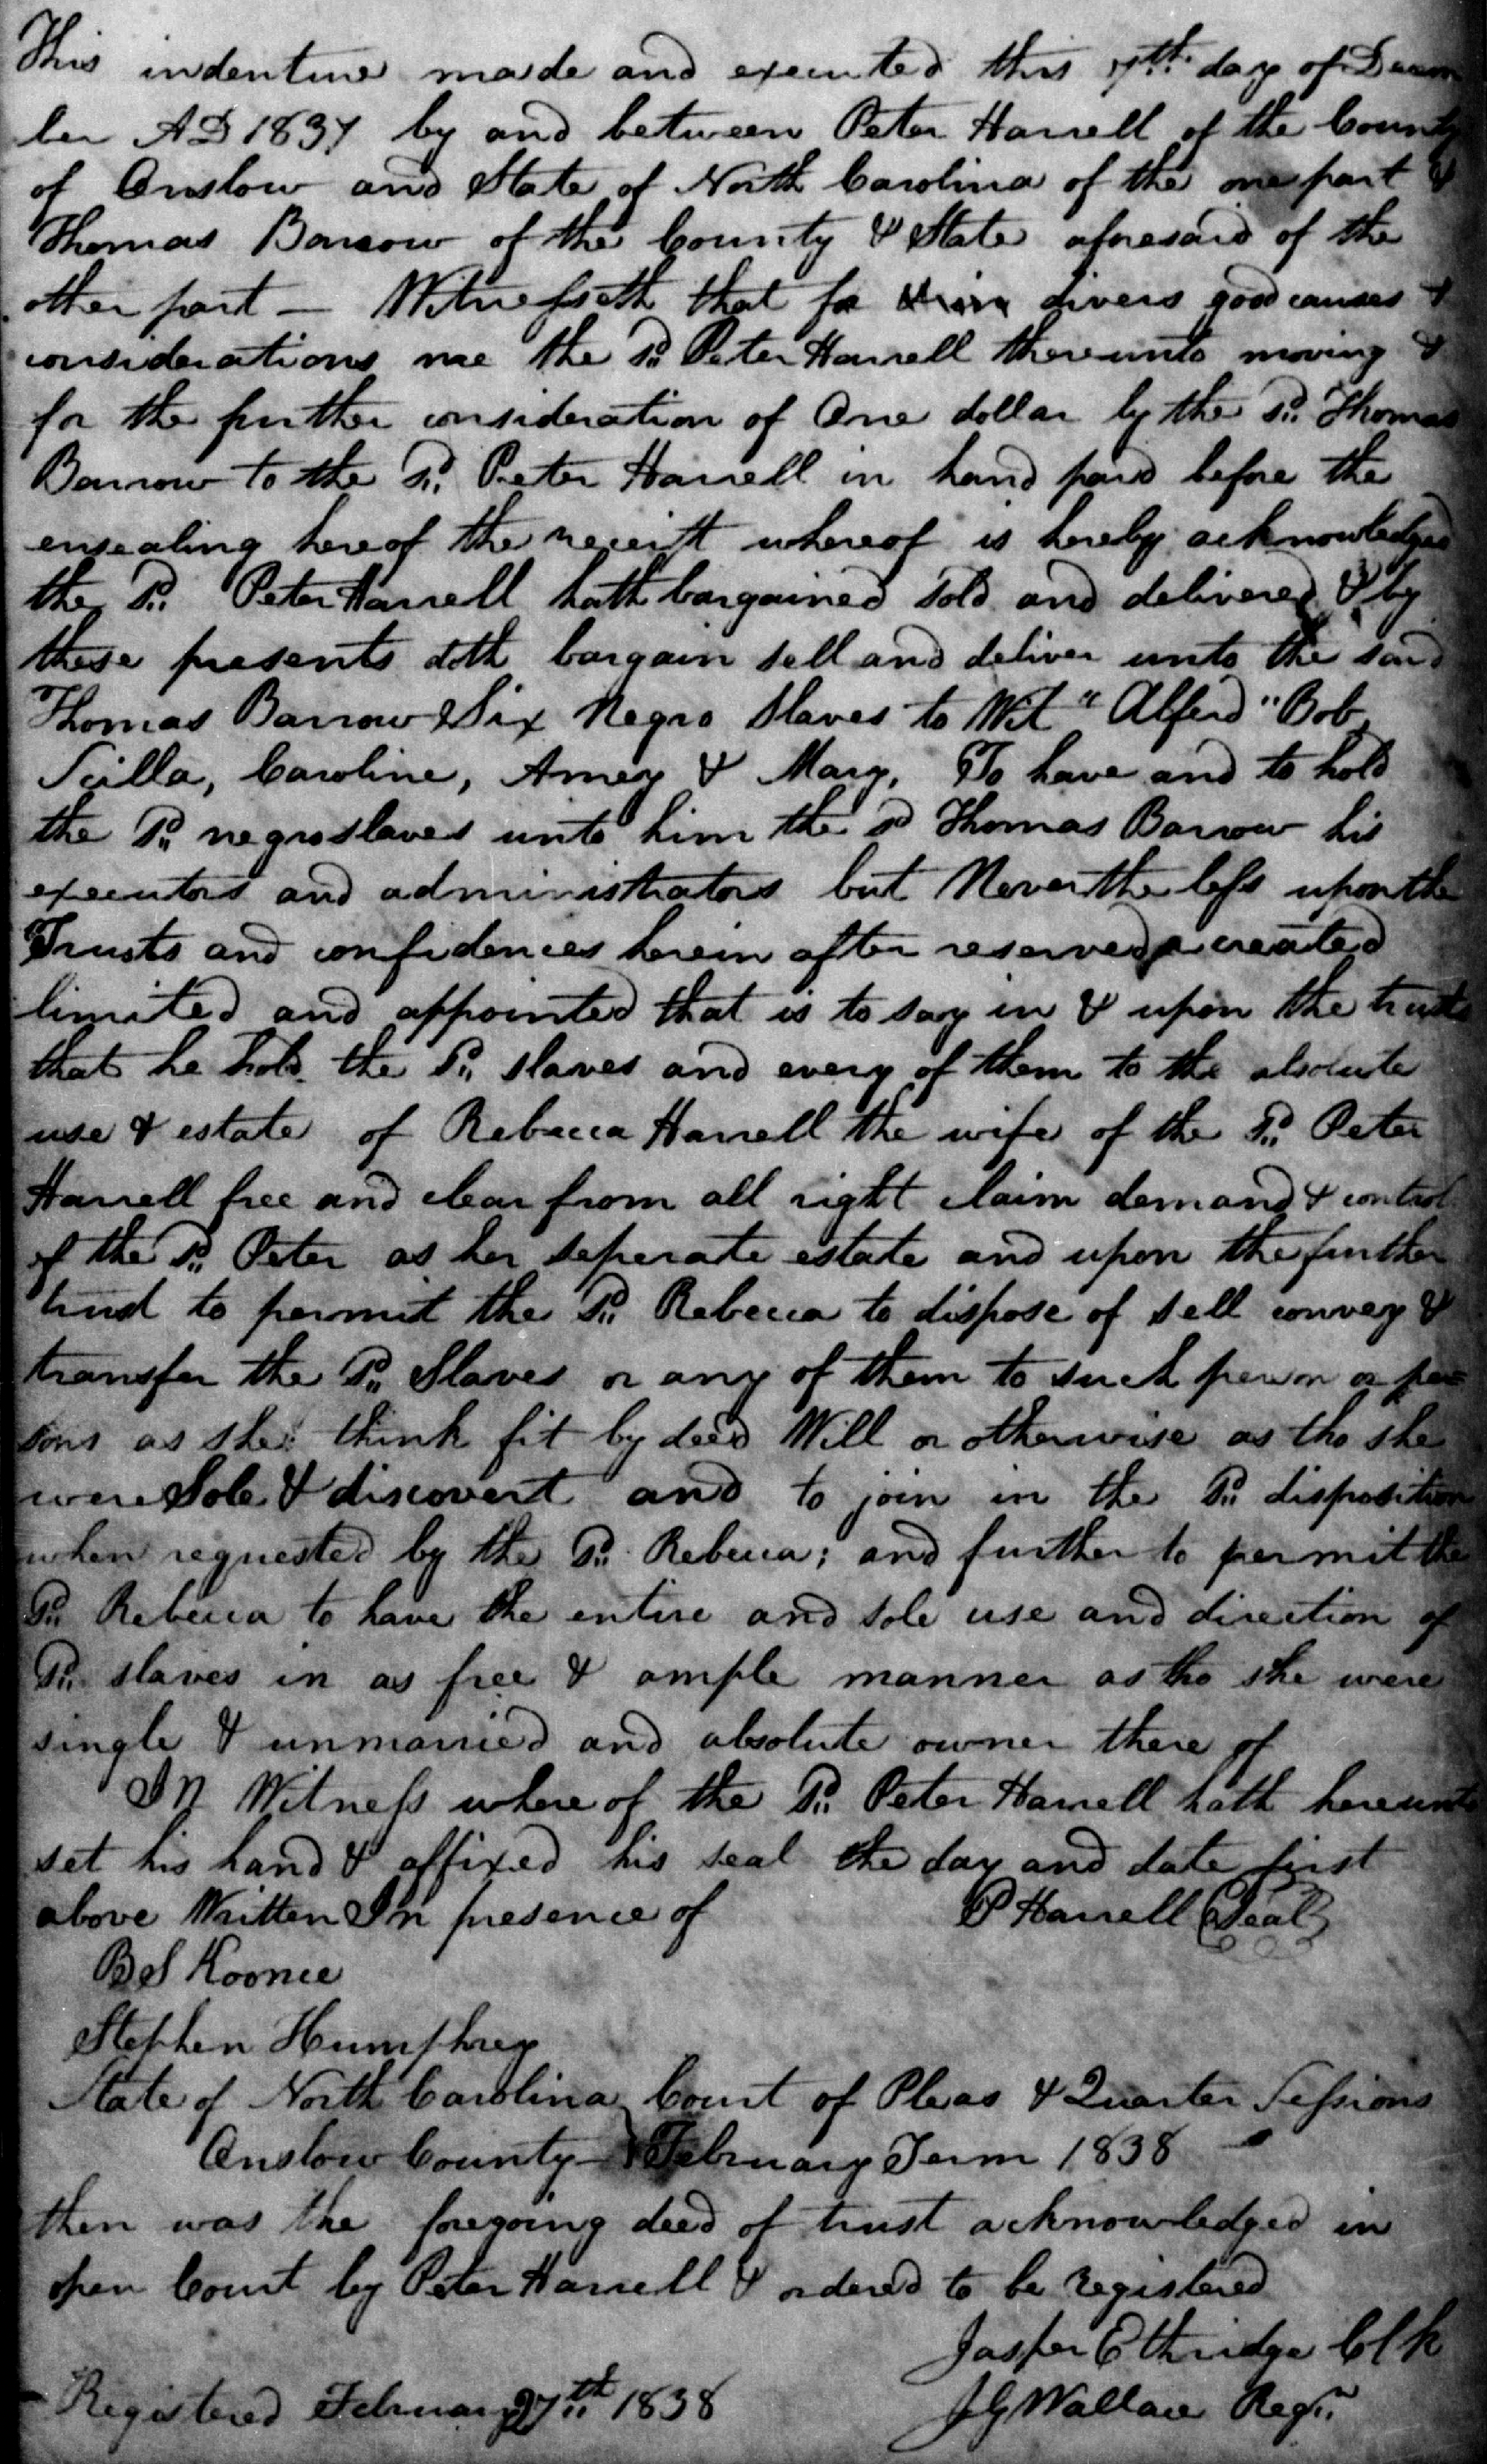 This indenture made and executed this 7th day of Decem
ber AD 1837 by and between Peter Harrell of the County
of Onslow and State of North Carolina of the one part &
Thomas Barrow of the County & State aforesaid of the
other part — Witnesseth that for divers good causes &
considerations me the Sd. Peter Harrell thereunto moving &
for the further consideration of One dollar by the Sd. Thomas
Barrow to the Sd. Peter Harrell in hand paid before the
ensealing hereof the receipt whereof is hereby acknowledged
the Sd. Peter Harrell hath bargained sold and delivered & by
these presents doth bargain sell and deliver unto the said
Thomas Barrow Six Negro Slaves to Wit "Alferd" Bob
Scilla, Caroline, Amey & Mary, To have and to hold
the Sd. negro slaves unto him the Sd Thomas Barrow his
executors and administrators but Nevertheless upon the
Trusts and confidences herein after reserved created
limited and appointed that is to say in & upon the trusts
that he hold the Sd. slaves and every of them to the absolute
use & estate of Rebecca Harrell the wife of the Sd. Peter
Harrell free and clear from all right claim demand & control
of the Sd. Peter as her seperate estate and upon the further
trust to permit the Sd. Rebecca to dispose of sell convey &
transfer the Sd. Slaves or any of them to such person or per=
sons as she think fit by deed Will or otherwise as tho she
were Sole & discovert and to join in the Sd. disposition
when requested by the Sd. Rebecca; and further to permit the
Sd. Rebecca to have the entire and sole use and direction of
Sd. slaves in as free & ample manner as tho she were
single & unmarried and absolute owner there of
In Witness where of the Sd. Peter Harrell hath hereunto
set his hand & affixed his seal the day and date first
above Written In presence of P Harrell (Seal)
B S Koonce
Stephen Humphrey
State of North Carolina Court of Pleas & Quarter Sessions
Onslow County February Term 1838
then was the foregoing deed of trust acknowledged in
open Court by Peter Harrell & ordered to be registered
Jasper Ethridge Clk
Registered February 27th 1838 J G Wallace Regr.